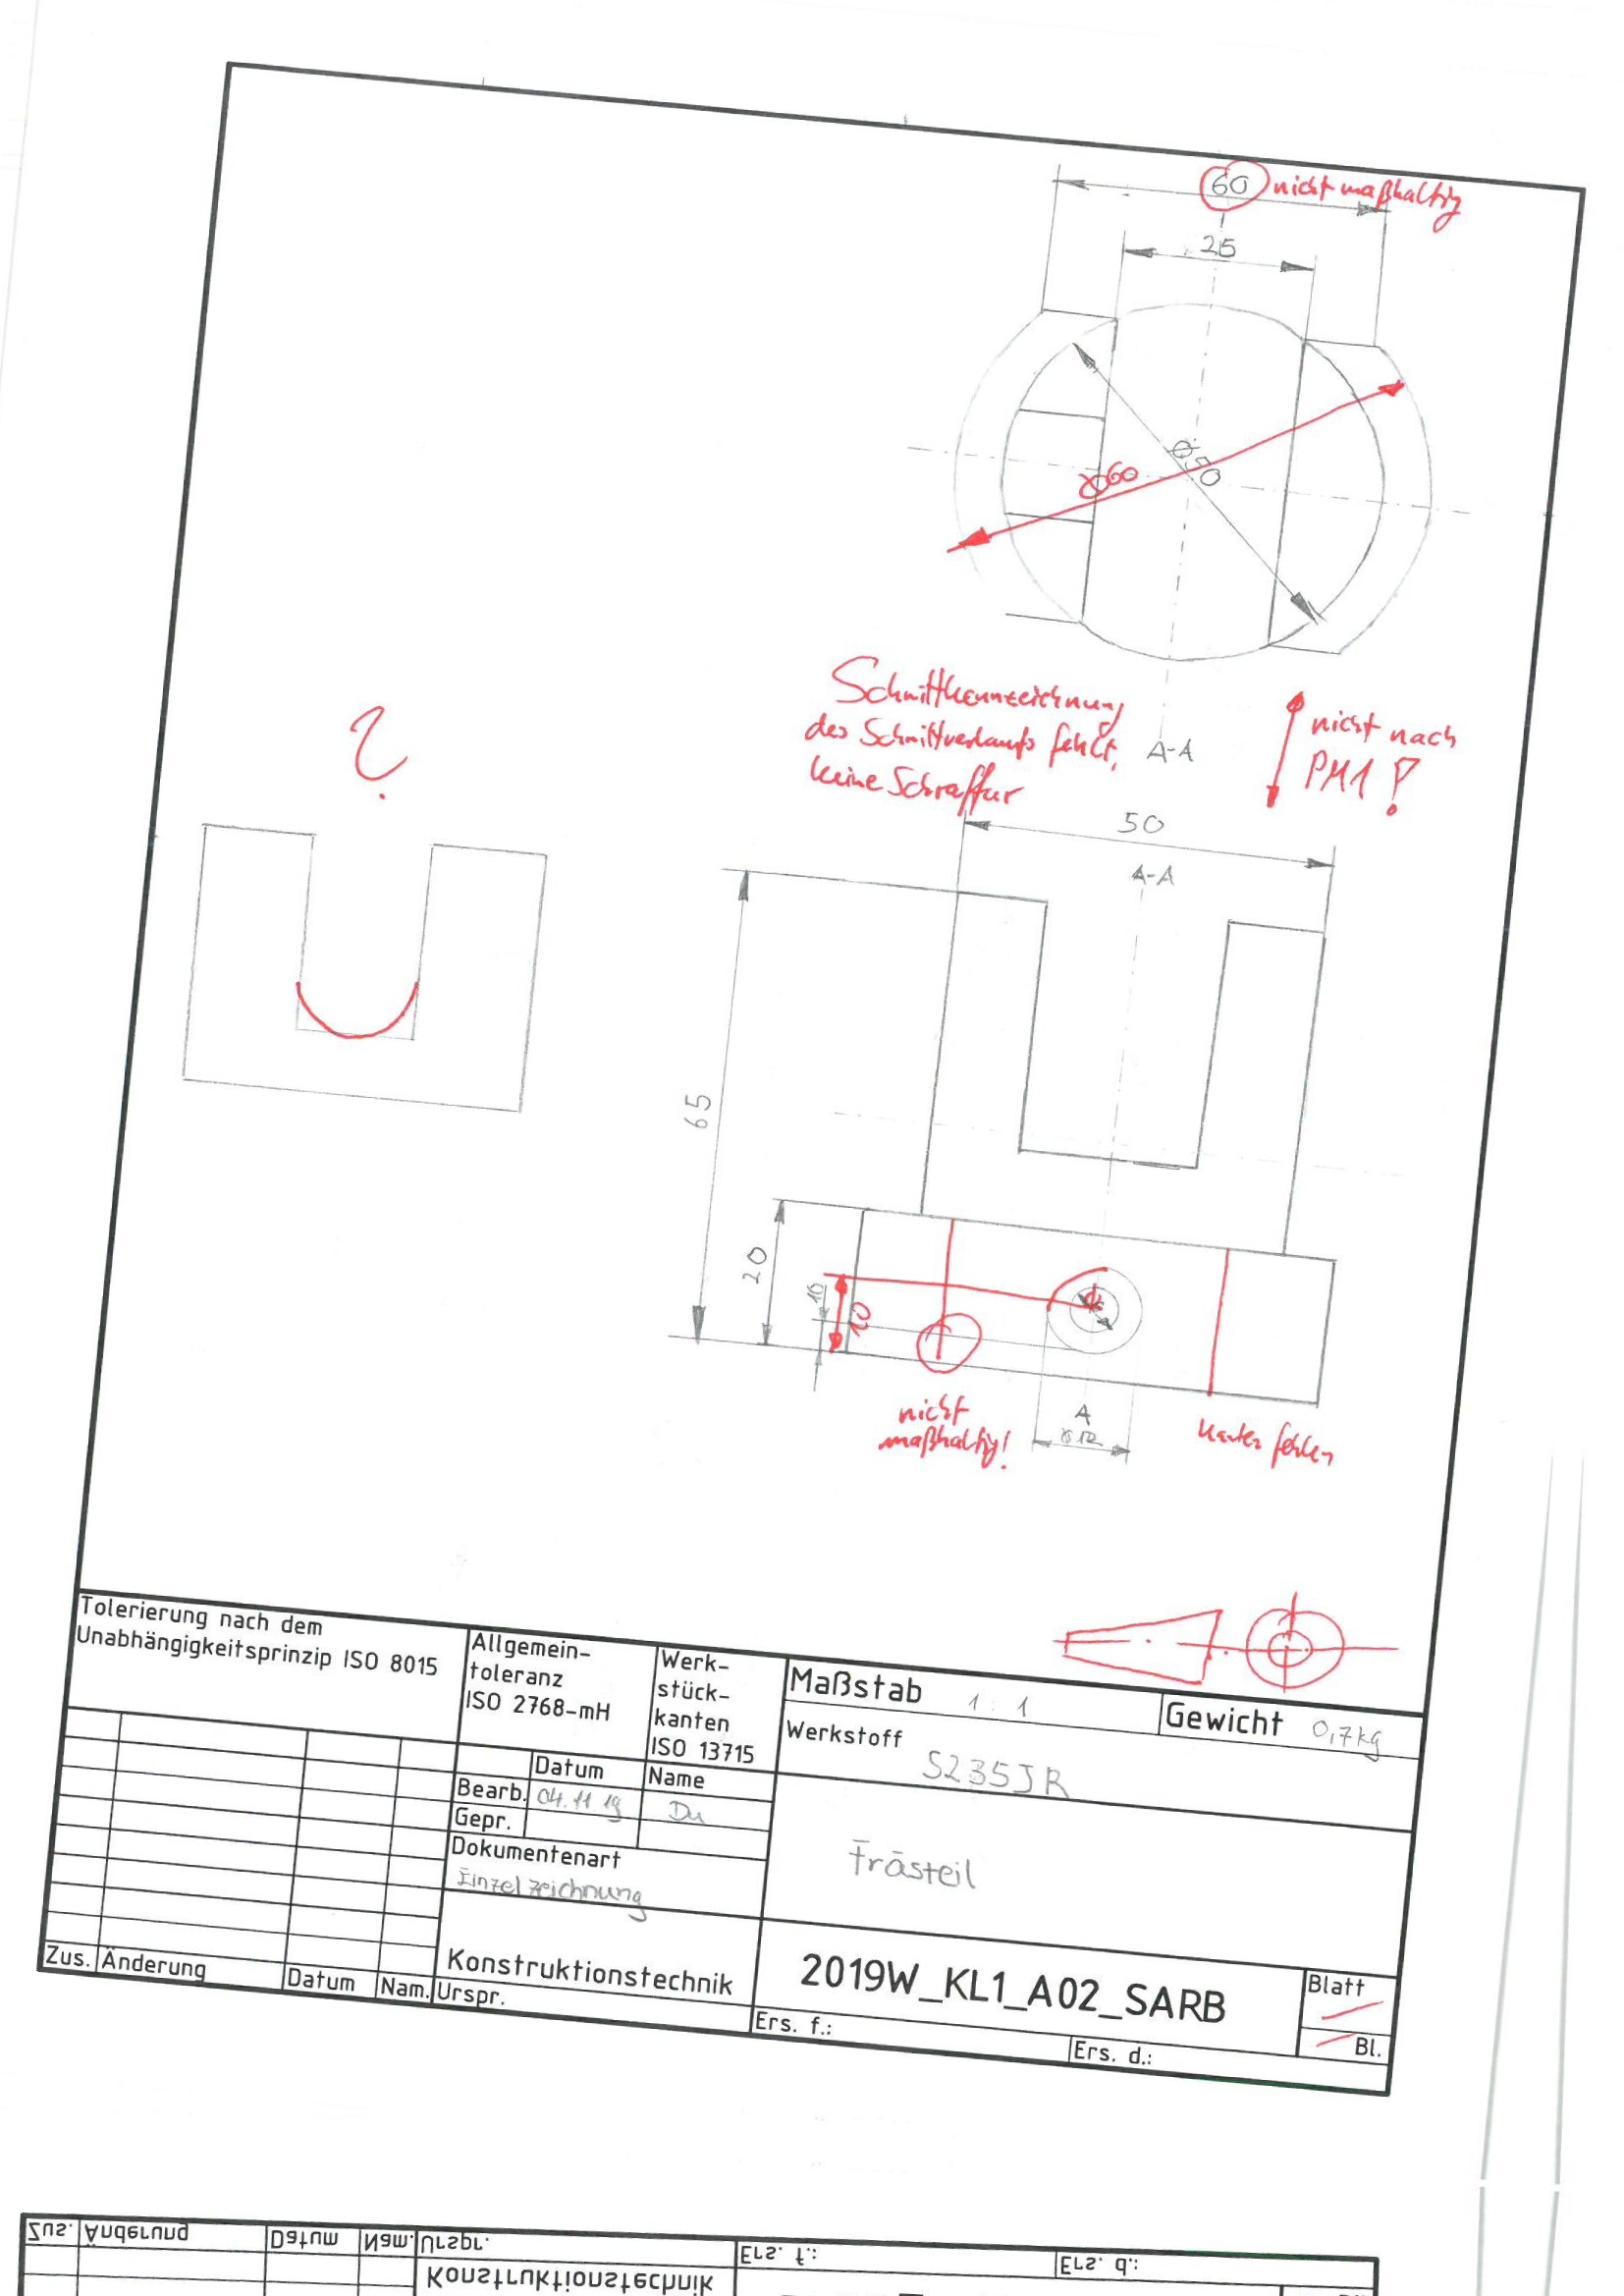 60 nicht maßhaltig
25
Ø50
Ø60
Schnittkennzeichnung
des Schnittverlaufs fehlt,
keine Schraffur
A-A
nicht nach
PM1!
?
50
A-A
65
20
10
10
nicht
maßhaltig!
A
Ø12
Kanten fehlen
Tolerierung nach dem
Unabhängigkeitsprinzip ISO 8015
Allgemein-
toleranz
ISO 2768-mH
Werk-
stück-
kanten
ISO 13715
Maßstab 1:1
Gewicht 0,7kg
Werkstoff
S235JR
Datum Name
Bearb. 04.11 19 Du
Gepr.
Dokumentenart
Einzelzeichnung
Frästeil
Konstruktionstechnik
2019W_KL1_A02_SARB
Blatt
Bl.
Zus. Änderung Datum Nam. Urspr.
Ers. f.:
Ers. d.:
Zus. Änderung Datum Nam. Urspr.
Ers. f.:
Ers. d.:
Konstruktionstechnik